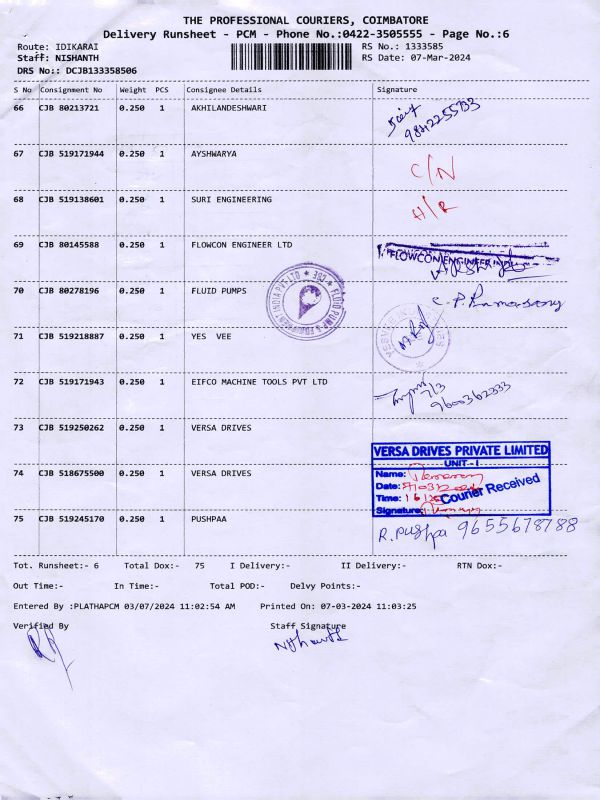 THE PROFESSIONAL COURIERS, COIMBATORE
Delivery Runsheet - PCM - Phone No.:0422-3505555 - Page No.:6
Route: IDIKARAI RS No.: 1333585
Staff: NISHANTH RS Date: 07-Mar-2024
DRS No:: DCJB133358506
S No Consignment No Weight PCS Consignee Details Signature
66 CJB 80213721 0.250 1 AKHILANDESHWARI
67 CJB 519171944 0.250 1 AYSHWARYA C/N
68 CJB 519138601 0.250 1 SURI ENGINEERING H/R
69 CJB 80145588 0.250 1 FLOWCON ENGINEER LTD
70 CJB 80278196 0.250 1 FLUID PUMPS C.P. Ramasamy
71 CJB 519218887 0.250 1 YES VEE
72 CJB 519171943 0.250 1 EIFCO MACHINE TOOLS PVT LTD 7/3
9600362333
73 CJB 519250262 0.250 1 VERSA DRIVES
VERSA DRIVES PRIVATE LIMITED
UNIT - I
74 CJB 518675500 0.250 1 VERSA DRIVES Name:
Date:
Time: Courier Received
Signature:
75 CJB 519245170 0.250 1 PUSHPAA R. Pushpa 9655678788
Tot. Runsheet:- 6 Total Dox:- 75 I Delivery:- II Delivery:- RTN Dox:-
Out Time:- In Time:- Total POD:- Delvy Points:-
Entered By :PLATHAPCM 03/07/2024 11:02:54 AM Printed On: 07-03-2024 11:03:25
Verified By Staff Signature